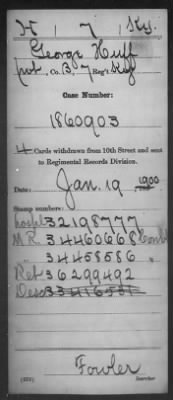 H | 7 | Ky.
George Huff
pvt., Co. B, 7 Reg't Ky
Case Number:
1860903
4 Cards withdrawn from 10th Street and sent
to Regimental Records Division.
Date: Jan. 19, 1900
Stamp numbers:
hospl 32198777
M.R. 34460668 Comb
" 34458586 "
Ret 36299492
Des 33416551
Fowler
Searcher